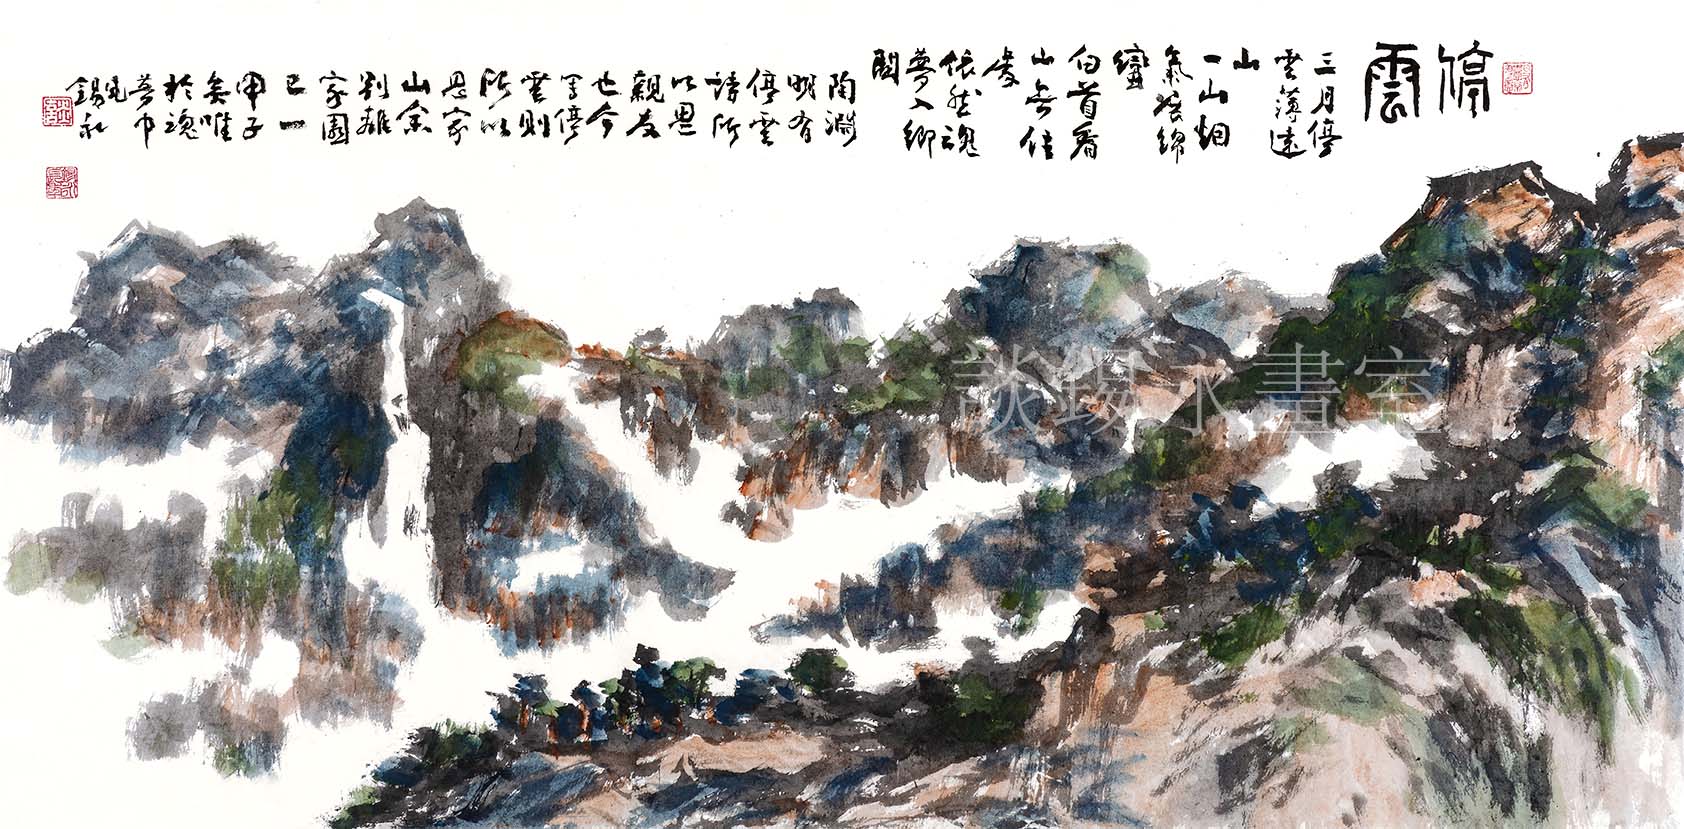 停
雲
三月停
雲薄遠
山
一山烟
氣
白首看
山無住
處
依然魂
夢入鄉
關
陶淵
明有
停雲
詩所
以思
親友
也今
寫停
雲則
所以
思家
山余
別離
家園
已一
甲子
矣唯
於魂
夢中
見
錫永
談錫永畫室